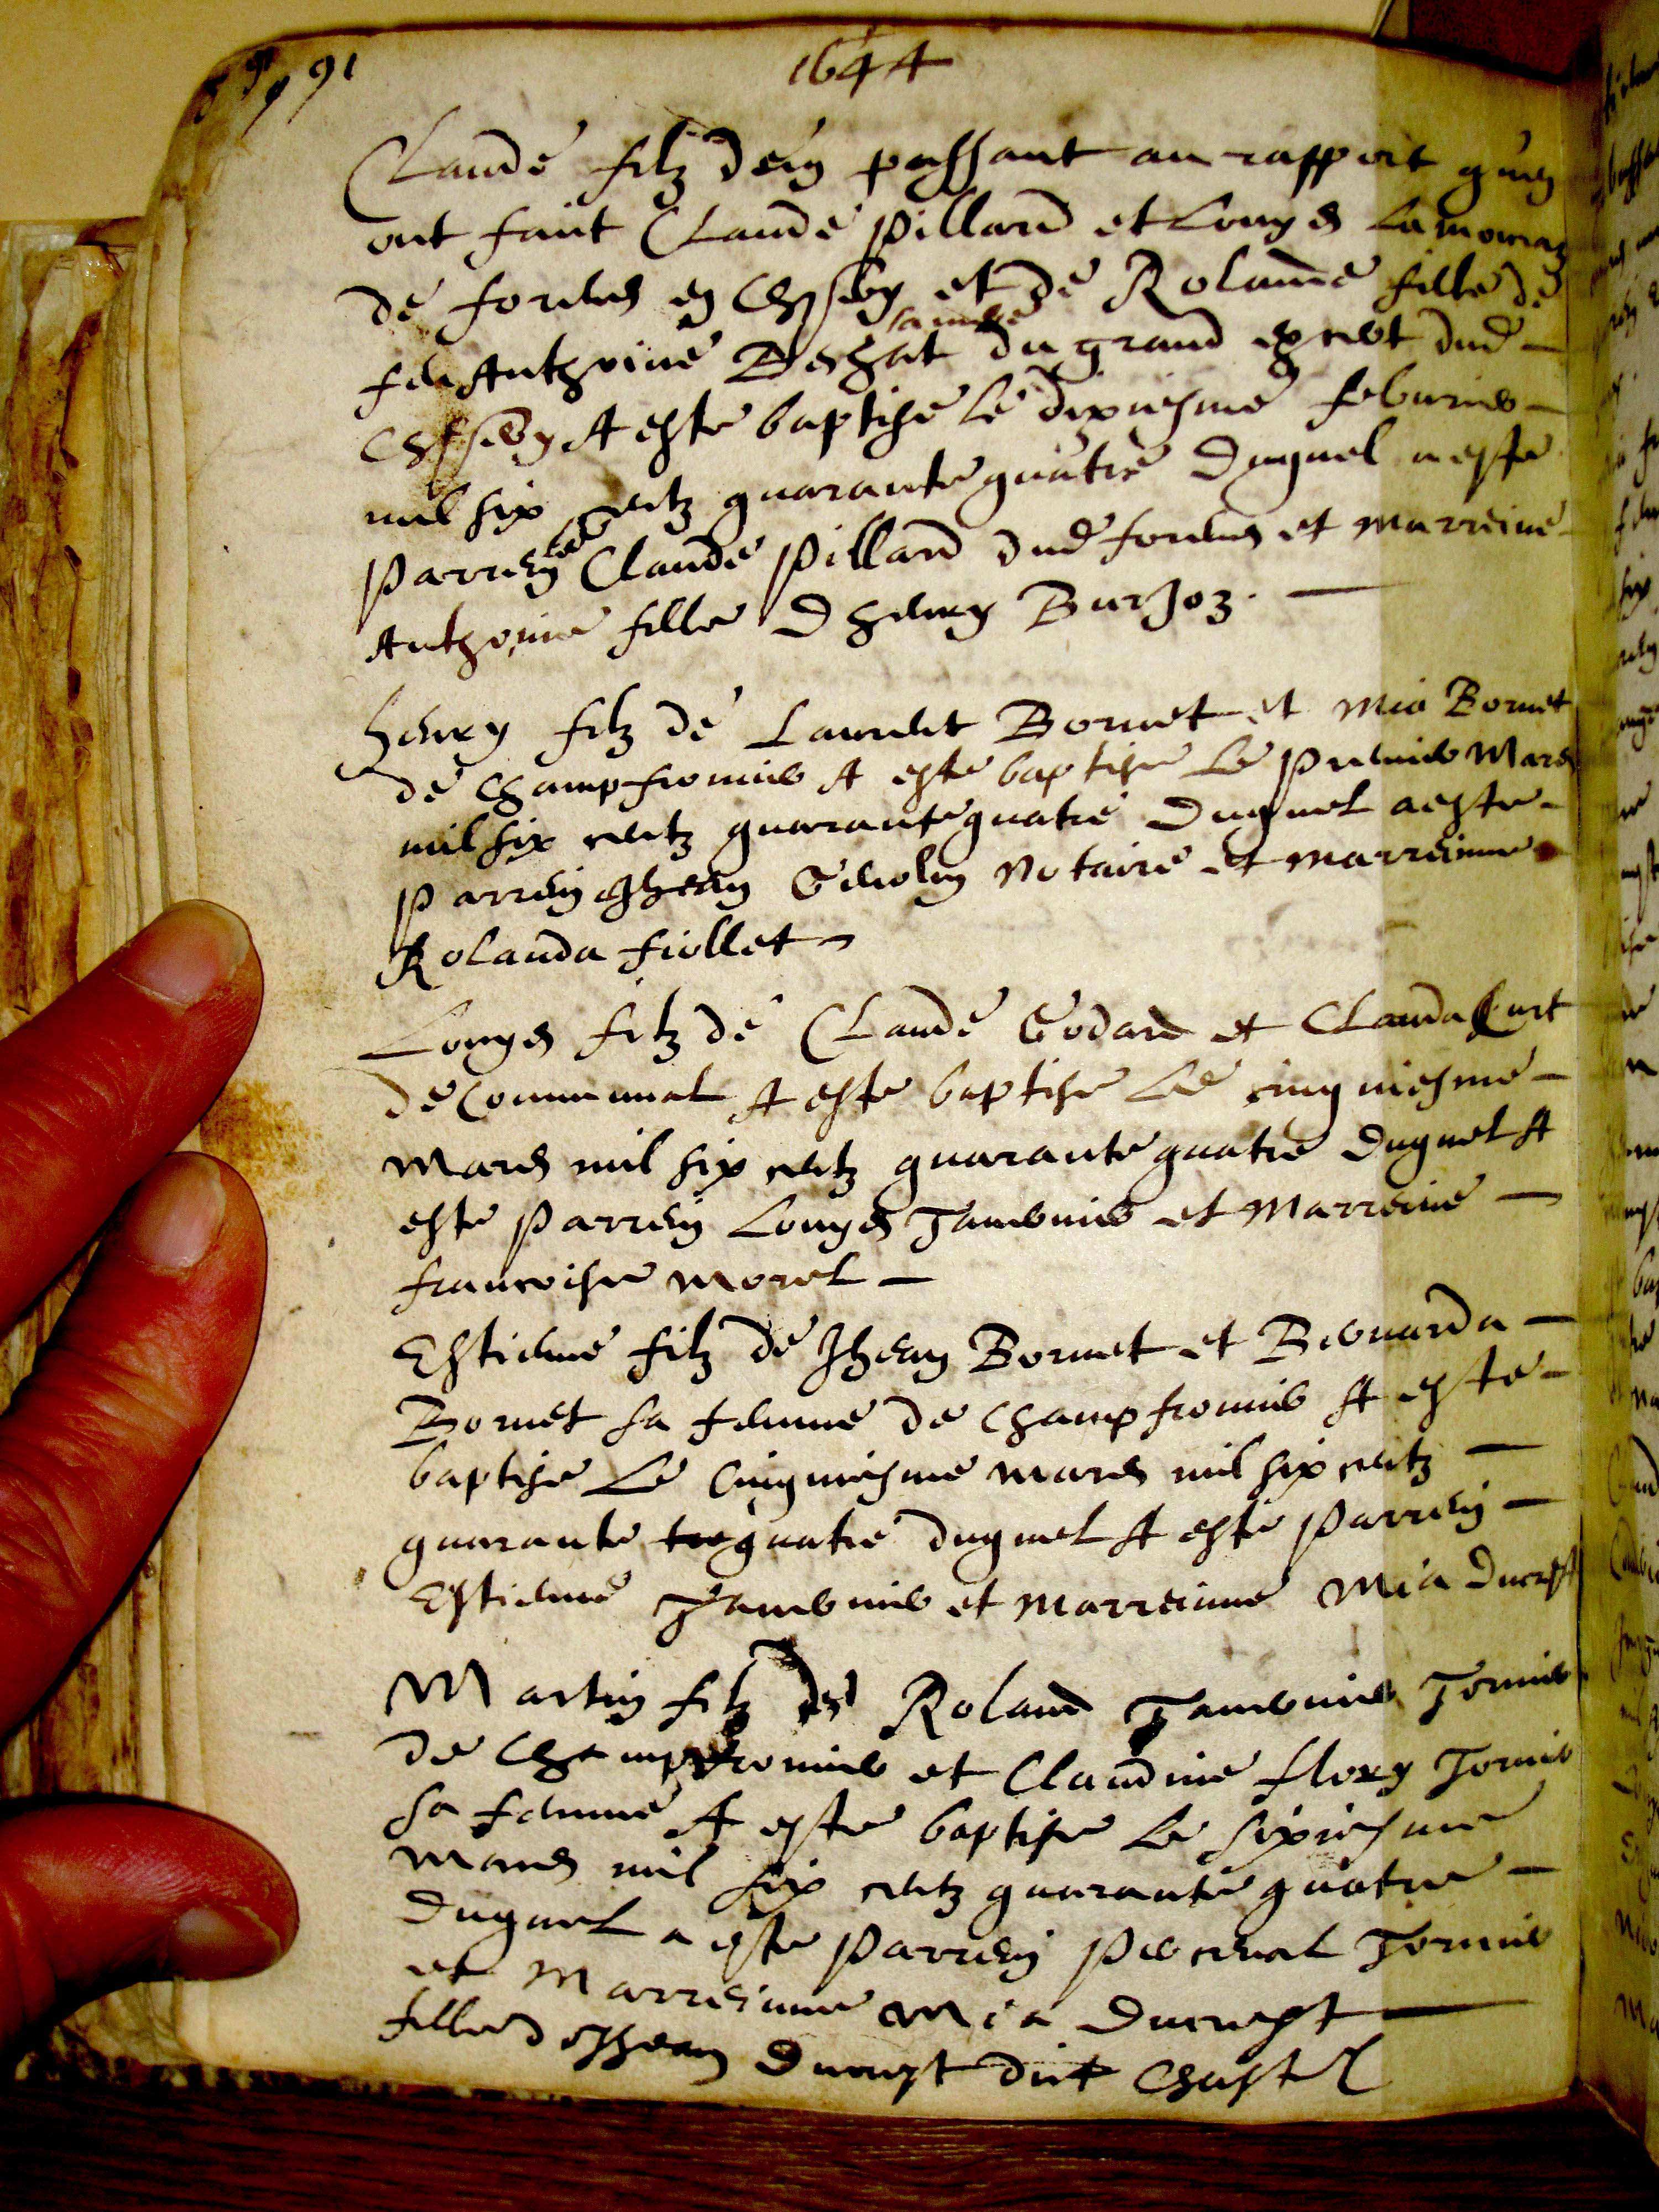 91
1644
Claude filz d'ung passant au rapport qu'en
ont faict Claude Pillard et Louys Lamouraz
de forens en Chesery et de Rolande fille de
feu Anthoine Beshat du grand essert dud
Chesery A este baptise le dixiesme febvrier
mil six centz quarante quatre Duquel a este
Parrein Claude Pillard dud forens et marreine
Anthoine fille D henry Burjoz.
henry filz de Laurent Bornet et Mia Bornet
de champfromier A este baptise le premier Mars
mil six centz quarante quatre Duquel a este
Parrein Jhean Genolin Notaire et marreinne
Rolanda fiollet
Louys filz de Claude Godard et Clauda Curt
de Communal A este baptise le cinquiesme
Mars mil six centz quarante quatre Duquel A
este Parrein Louys Tavernier et Marreine
francoise Morel
Estienne filz de Jhean Bornet et Bernarda
Bornet sa femme de champfromier A este
baptise le Cinquiesme mars mil six centz
quarante quatre duquel A este Parrein
Estienne Tavernier et Marreinne Mia Ducrest
Martin filz de Roland Tavernier Tornier
de Champfromier et Claudine flory Tornier
sa femme A este baptise le sixiesme
Mars mil six centz quarante quatre
Duquel a este Parrein Perceval Tornier
et Marreinne Mia Ducrest
fille d Jhean Ducrest dict Chastel